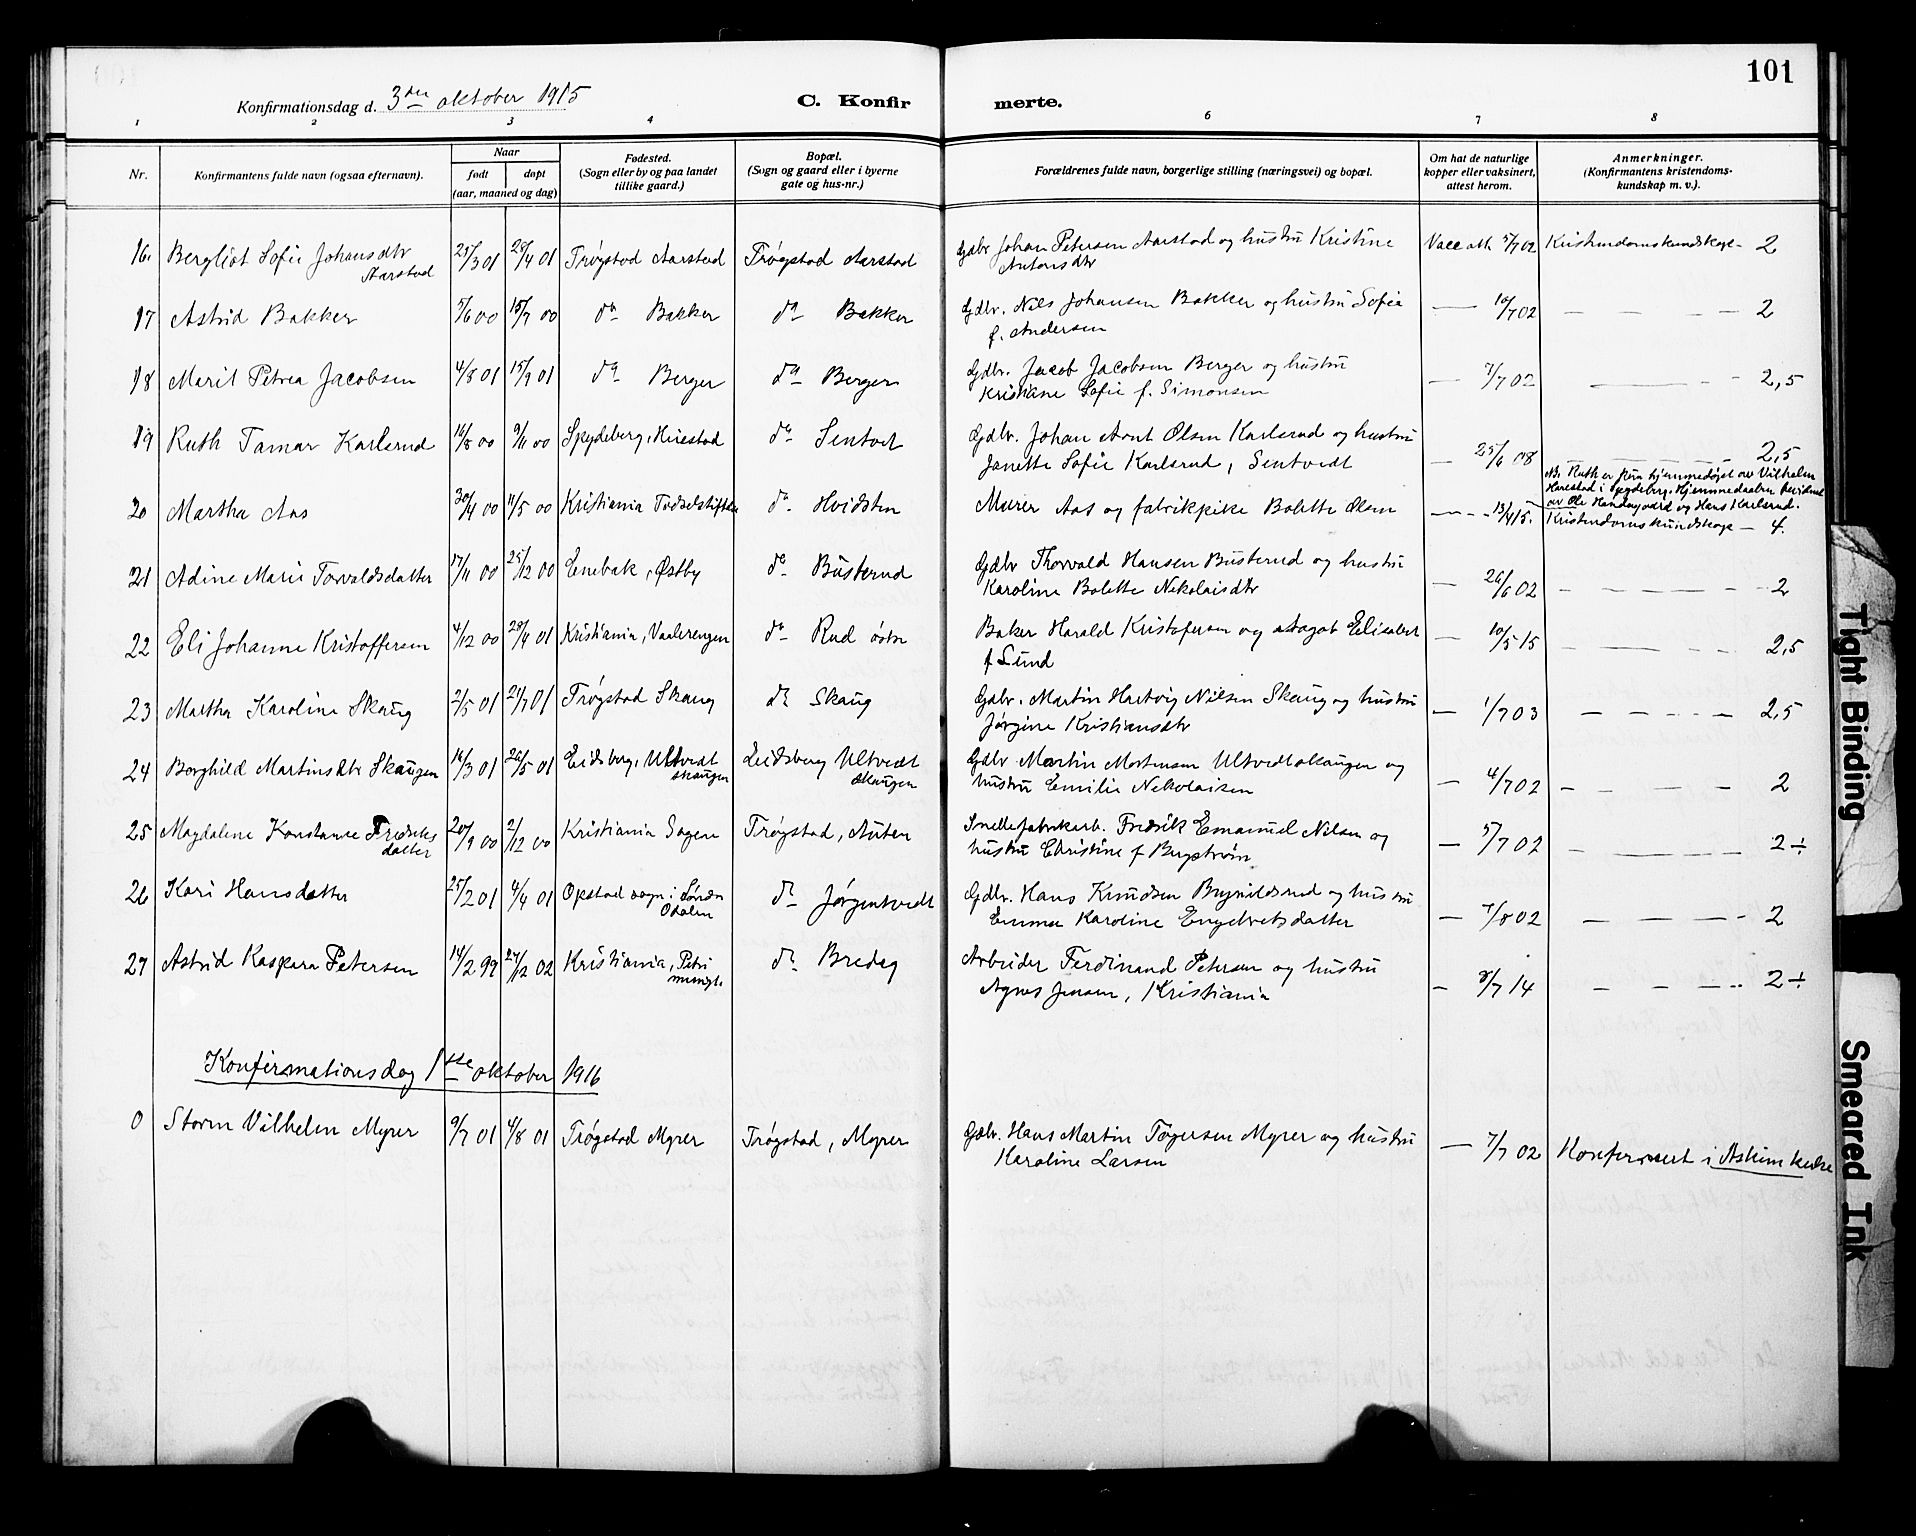 101
Konfirmationsdag d. 3die oktober 1915
C. Konfir merte.
1 2 3 4 5 6 7 8
Nr.
Konfirmantens fulde navn (ogsaa efternavn).
Naar
født døpt
(aar, maaned og dag)
Fødested.
(Sogn eller by og paa landet
tillike gaard.)
Bopæl.
(Sogn og gaard eller i byerne
gate og hus-nr.)
Forældrenes fulde navn, borgerlige stilling (næringsvei) og bopæl.
Om hat de naturlige
kopper eller vaksinert,
attest herom.
Anmerkninger.
(Konfirmantens kristendoms-
kundskap m. v.).
16. Bergliot Sofie Johansdtr 25/3 01 28/4 01 Trøgstad Aarstad Trøgstad Aarstad Gdbr Johan Petersen Aarstad og hustru Kristine Vacc att. 5/7 02 Kristendomskundskap - 2
Aarstad Antonsdtr
17 Astrid Bakker 5/6 00 15/7 00 do Bakker do Bakker Gdbr. Nils Johansen Bakker og hustru Sofie — 10/7 02 — — — — 2
f. Andersen
18 Marit Petrea Jacobsen 4/8 01 15/9 01 do Berger do Berger Gdbr. Jacob Jacobsen Berger og hustru — 7/7 02 — — — 2,5
Kristiane Sofie f. Simonsen
19 Ruth Tamar Karlsrud 16/8 00 9/11 00 Spydeberg, Hirestad do Sentvet Gdbr. Johan Arnt Olsen Karlsrud og hustru — 25/6 08 — — — 2,5
Janette Sofie Karlsrud, Sentvedt
NB. Ruth er kun hjemmedøpt av Vilhelm
Harestad i Spydeberg. Hjemmedaaben bevidnet
av Ole og Hans Karlsrud.
20 Martha Aas 30/4 00 11/5 00 Kristiania Fødselstiftelse do Hvidsten Murer Aas og fabrikpike Bolette Olsen — — - 13/4 15. Kristendomskundskap — 4.
21 Adine Marie Torvaldsdatter 17/11 00 25/12 00 Enebak, Østby do Busterud Gdbr Thorvald Hansen Busterud og hustru — 26/6 02 — — — — 2
Karoline Bolette Nikolaisdtr
22 Eli Johanne Kristoffersen 4/12 00 28/4 01 Kristiania, Vaalerengen do Rud østre Baker Harald Kristofersen og Elisabet — 10/5 15 — — — — 2,5
f Lund
23 Martha Karoline Skaug 2/5 01 21/7 01 Trøgstad Skaug do Skaug Gdbr. Martin Hartvig Nilsen Skaug og hustru — 1/7 03 — — — — 2,5
Jørgine Kristiansdtr
24 Borghild Martinsdtr Skaugen 16/3 01 26/5 01 Eidsberg, Ultvedt Eidsberg Ultvedt Gdbr Martin Mortensen Ultvedtskaugen og — 4/7 02 — — — — 2
skaugen skaugen hustru Emilie Nikolaisen
25 Magdalene Konstance Fredriks 20/9 00 2/12 00 Kristiania Sagen Trøgstad, Auten Snellefabrikarb. Fredrik Emanuel Nilsen og — 5/7 02 — — — — 2÷
datter hustru Christine f Bergstrøm
26 Kari Hansdatter 25/2 01 4/4 01 Opstad sogn i Søndre do Jørgentvedt Gdbr. Hans Knudsen Brynildsrud og hustru — 7/8 02 — — — — 2
Odalen Emma Karoline Engebretsdatter
27 Astrid Kaspara Petersen 14/2 99 27/12 02 Kristiania, Petri do Bredeg Arbeider Ferdinand Petersen og hustru — 8/7 14 — — — 2÷
menigh. Agnes Jensen, Kristiania
Konfirmationsdag 1ste oktober 1916
0 Storm Vilhelm Myrer 9/7 01 4/8 01 Trøgstad Myrer Trøgstad, Myrer Gdbr. Hans Martin Togersen Myrer og hustru — 7/7 02 Konfirmert i Askim kirke
Karoline Larsen
Tight Binding
Smeared Ink